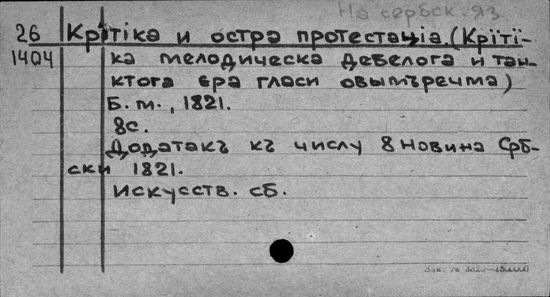 На сербск. яз.
26 Крітіка и остра протестаціа. (Крїтї-
1404 ка мелодическа дебелога и тан-
ктога ера гласи овымъречма)
Б. м., 1821.
8с.
Додатакъ къ числу 8 Новина Срб-
ски 1821.
Искусств. сб.